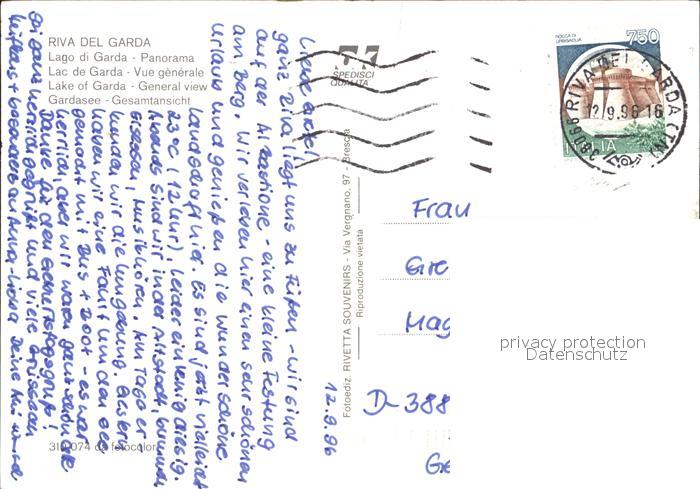 RIVA DEL GARDA
Lago di Garda - Panorama
Lac de Garda - Vue générale
Lake of Garda - General view
Gardasee - Gesamtansicht
SPEDISCI
QUALITÀ
ROCCA DI
URBISAGLIA
750
ITALIA
RIVA DEL GARDA (TN)
12.9.96-16
38.8.96
Fotoediz. RIVETTA SOUVENIRS - Via Vergnano, 97 - Brescia
Riproduzione vietata
12.9.96
ganz Riva liegt uns zu Füßen - wir sind
auf der Al Bastione - eine kleine Festung
am Berg. Wir verleben hier einen sehr schönen
Urlaub und genießen die wunderschöne
Landschaft hier. Es sind jetzt vielleicht
23°C (12 Uhr) leider ein wenig diesig.
Abends sind wir in der Altstadt, bummeln
Eisessen, Musikhören. Am Tage er-
kunden wir die Umgebung. Gestern
haben wir eine Fahrt um den See
gemacht mit Bus + Boot - es war
herrlich, aber wir waren ganz schön alle
Danke für den Geburtstagsgruß!
Seid ganz herzlich gegrüßt und viele Grüße an
Frau
Gre
Mag
D-388
Ge
privacy protection
Datenschutz
fotocolor